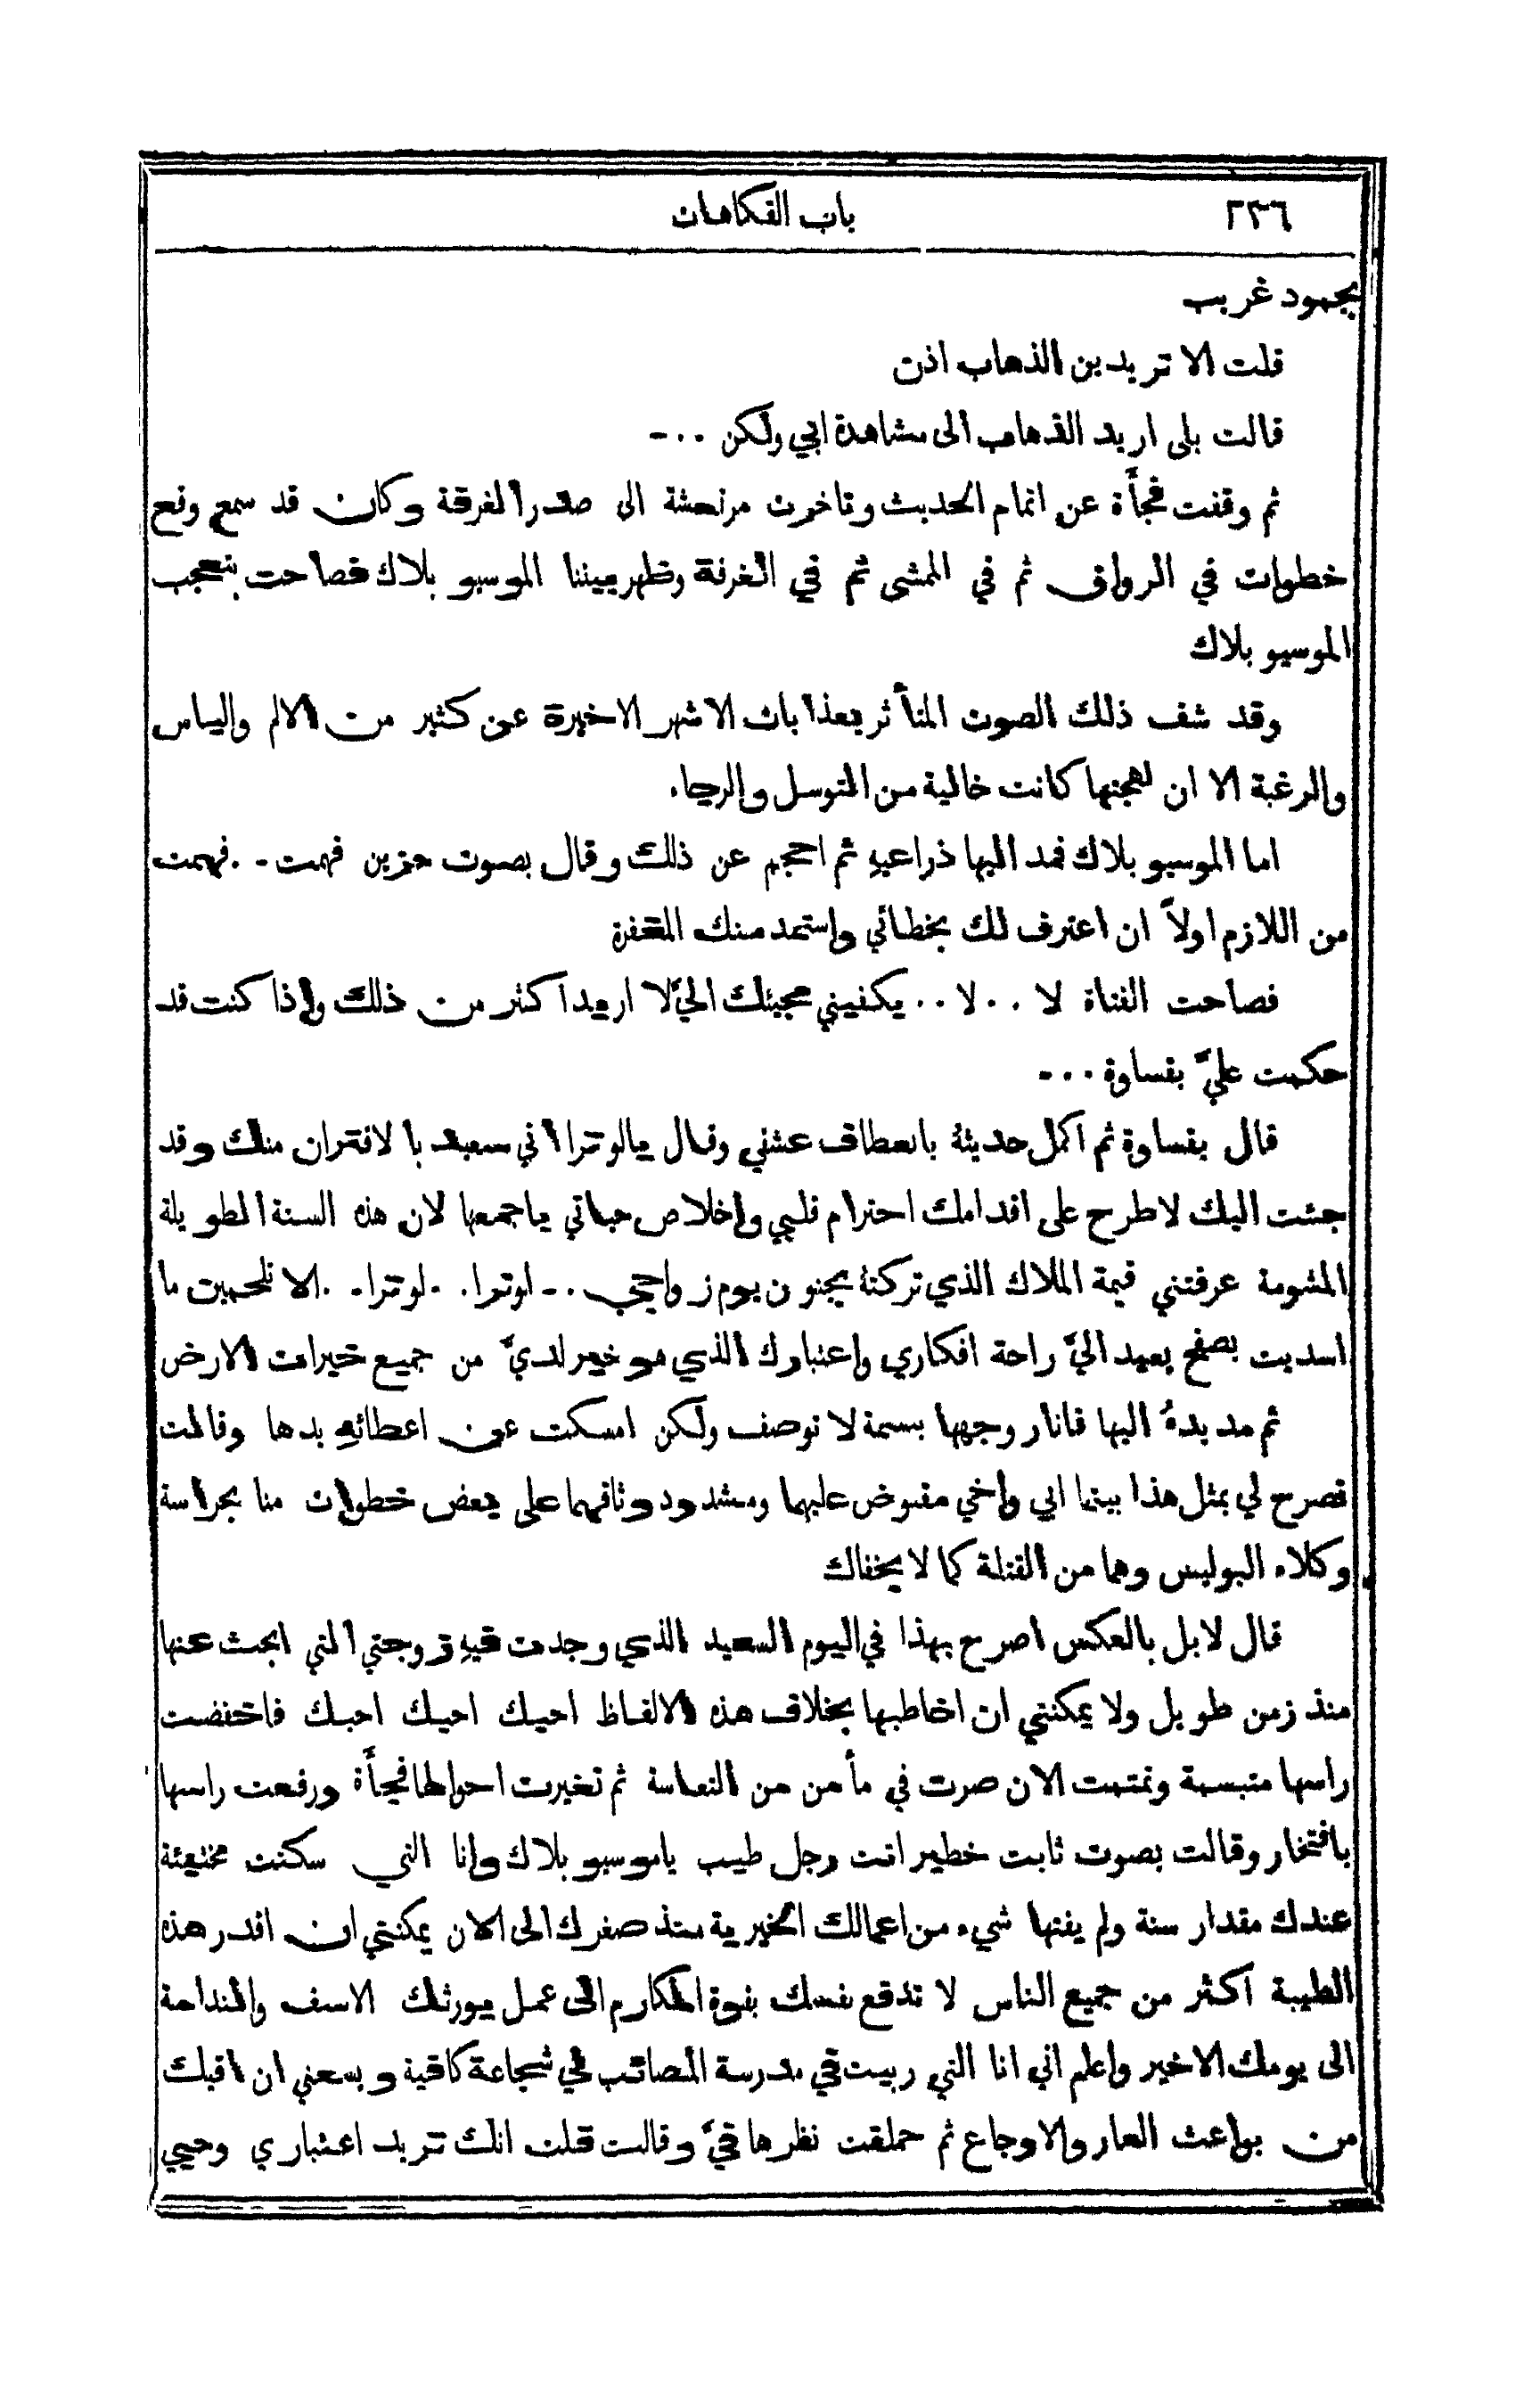 ٢٣٦ باب الفكاهات
بجمود غريب
قلت الا تريدين الذهاب اذن
قالت بلى اريد الذهاب الى مشاهدة ابي ولكن ٠٠-
ثم وقفت فجأة عن اتمام الحديث وتاخرت مرتعشة الى صدر الغرفة وكان قد سمع وقع
خطوات في الرواق ثم في الممشى ثم في الغرفة وظهر بيننا الموسيو بلاك فصاحت بتعجب
الموسيو بلاك
وقد شف ذلك الصوت المتأثر بعذابات الاشهر الاخيرة عن كثير من الالم والياس
والرغبة الا ان لهجتها كانت خالية من التوسل والرجاء
اما الموسيو بلاك فمد اليها ذراعيهِ ثم احجم عن ذلك وقال بصوت حزين فهمت - ٠فهمت
من اللازم اولاً ان اعترف لك بخطائي واستمد منك المغفرة
فصاحت الفتاة لا ٠٠ لا ٠٠ يكفيني مجيئك اليَّ لا اريد اكثر من ذلك واذا كنت قد
حكمت عليَّ بقساوة ٠٠٠-
قال بقساوة ثم اكمل حديثهُ بانعطاف عشقي وقال يالوترا اني سعيد بالاقتران منك وقد
جئت اليك لاطرح على اقدامك احترام قلبي واخلاص حياتي باجمعها لان هذه السنة الطويلة
المشومة عرفتني قيمة الملاك الذي تركتهُ بجنون يوم زواجي ٠- لوترا٠ ٠لوترا٠ ٠الا تلحمين ما
اسديت بصفح يعيد اليَّ راحة افكاري واعتبارك الذي هو خير لديَّ من جميع خيرات الارض
ثم مد يدهُ اليها فانار وجهها بسمة لا توصف ولكن امسكت عن اعطائهِ يدها وقالت
تصرح لي بمثل هذا بينما ابي واخي مقبوض عليهما ومشدود وثاقهما على بعض خطوات منا بحراسة
وكلاء البوليس وهما من القتلة كما لا يخفاك
قال لا بل بالعكس اصرح بهذا في اليوم السعيد الذي وجدت فيهِ زوجتي التي ابحث عنها
منذ زمن طويل ولا يمكنني ان اخاطبها بخلاف هذه الالفاظ احبك احبك احبك فاخفضت
راسها متبسمة وتمتمت الان صرت في مأمن من التعاسة ثم تغيرت احوالها فجأة ورفعت راسها
بافتخار وقالت بصوت ثابت خطير انت رجل طيب ياموسيو بلاك وانا التي سكنت مختبئة
عندك مقدار سنة ولم يفتها شيء من اعمالك الخيرية منذ صغرك الى الان يمكنني ان اقدر هذه
الطيبة اكثر من جميع الناس لا تدفع نفسك بقوة المكارم الى عمل يورثك الاسف والندامة
الى يومك الاخير واعلم اني انا التي ربيت في مدرسة المصائب فيَّ شجاعة كافية ويسعني ان اقيك
من بواعث العار والاوجاع ثم حملقت نظرها فيَّ وقالت قلت انك تريد اعتباري وحبي